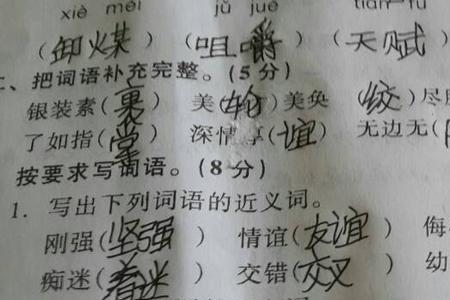 xiè méi jǔ jué tiān fù
(卸煤) (咀嚼) (天赋)
二、把词语补充完整。(5分)
银装素(裹) 美(轮)美奂 (绞)尽
了如指(掌) 深情厚(谊) 无边无(
按要求写词语。(8分)
1. 写出下列词语的近义词。
刚强(坚强) 情谊(友谊) 侮
痴迷(着迷) 交错(交叉) 幼